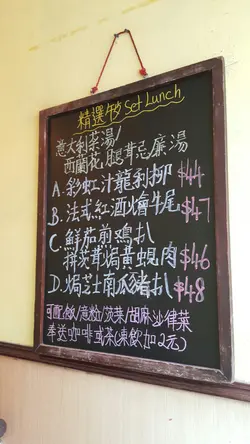 精選午餐 Set Lunch
意大利菜湯/
西蘭花腿茸忌廉湯
A. 彩虹汁龍利柳 $44
B. 法式紅酒燴牛尾 $47
C. 鮮茄煎鷄扒
揀茨茸焗黃蜆肉 $46
D. 焗芝士南瓜豬扒 $48
可配飯/意粉/炎菜/胡麻沙律菜
奉送咖啡或茶(凍飲加2元)